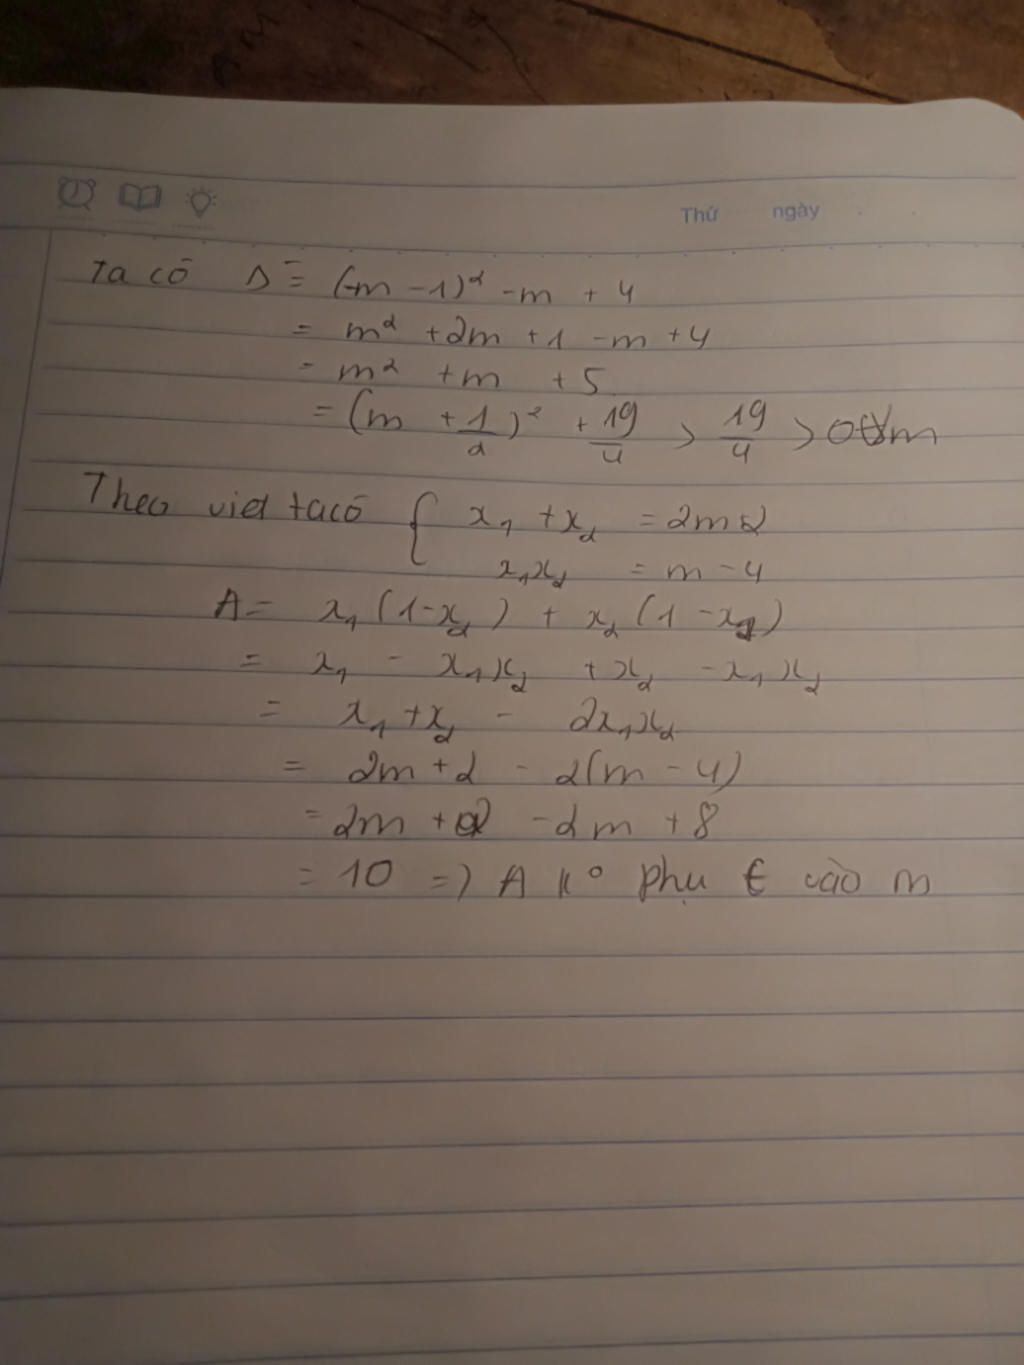 Thứ ngày
Ta có Δ = (-m - 1)² - m + 4
= m² + 2m + 1 - m + 4
= m² + m + 5
= (m + 1/2)² + 19/4 > 19/4 > 0 ∀m
Theo viet ta có { x₁ + x₂ = 2m
x₁x₂ = m - 4
A = x₁(1 - x₂) + x₂(1 - x₁)
= x₁ - x₁x₂ + x₂ - x₁x₂
= x₁ + x₂ - 2x₁x₂
= 2m + 2 - 2(m - 4)
= 2m + 2 - 2m + 8
= 10 => A k° phụ € vào m